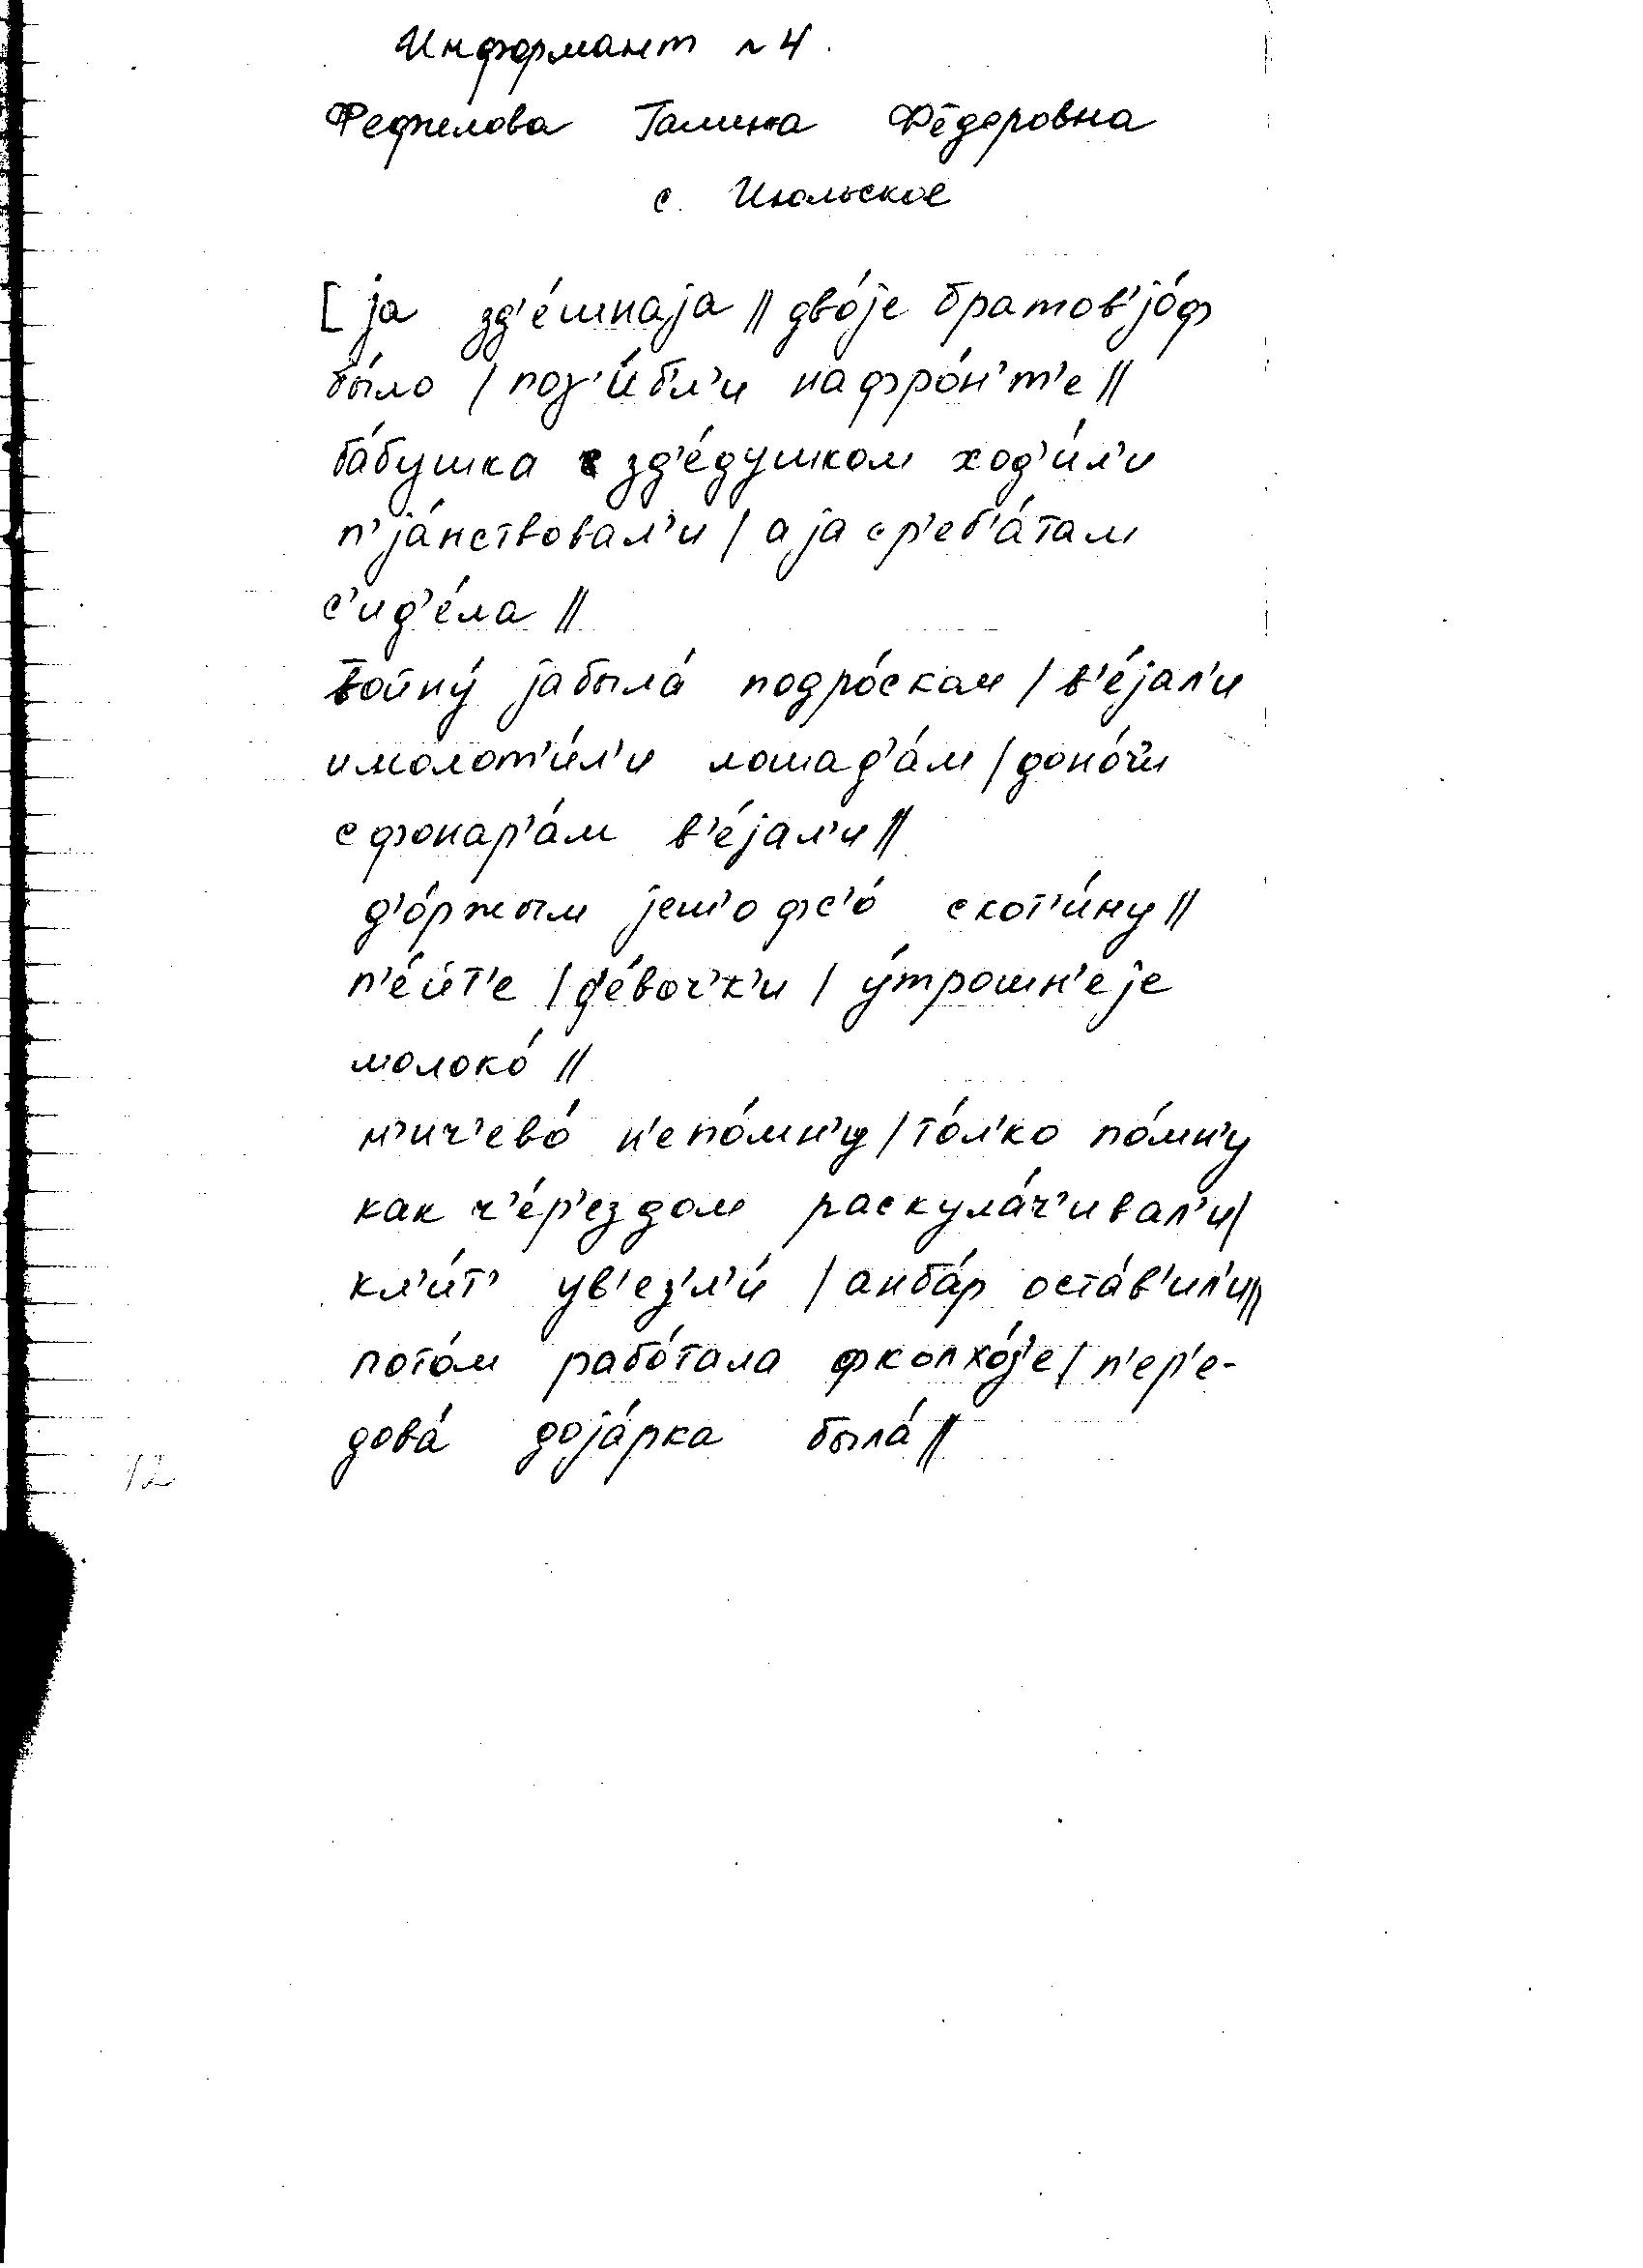 Информант ~ 4.
Фефилова Галина Фёдоровна
с. Июльское
[ jа зд'е́шнаjа // дво́jе братов'jо́ф
бы́ло / пог'и́бл'и нафро́н'т'е //
ба́бушка с зд'е́душком ход'и́л'и
п'jа́нствовал'и / аjа ср'еб'а́там
с'ид'е́ла //
войну́ jабыла́ подро́скам / в'е́jал'и
имолот'и́л'и лошад'а́м / доно́чи
сфонар'а́м в'е́jал'и //
д'о́ржым jеш'о фс'о́ скот'и́ну //
п'е́йт'е / д'е́воч'к'и / у́трошн'еjе
молоко́ //
н'ич'ево́ н'епо́мн'у / то́л'ко по́мн'у
как ч'е́р'ездом раскула́ч'ивал'и /
кл'и́т' ув'ез'л'и́ / анба́р оста́в'ил'и //
пото́м рабо́тала фколхо́з'е / п'ер'е-
дова́ доjа́рка была́ //
12